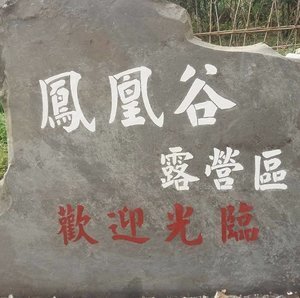 鳳凰谷
露營區
歡迎光臨